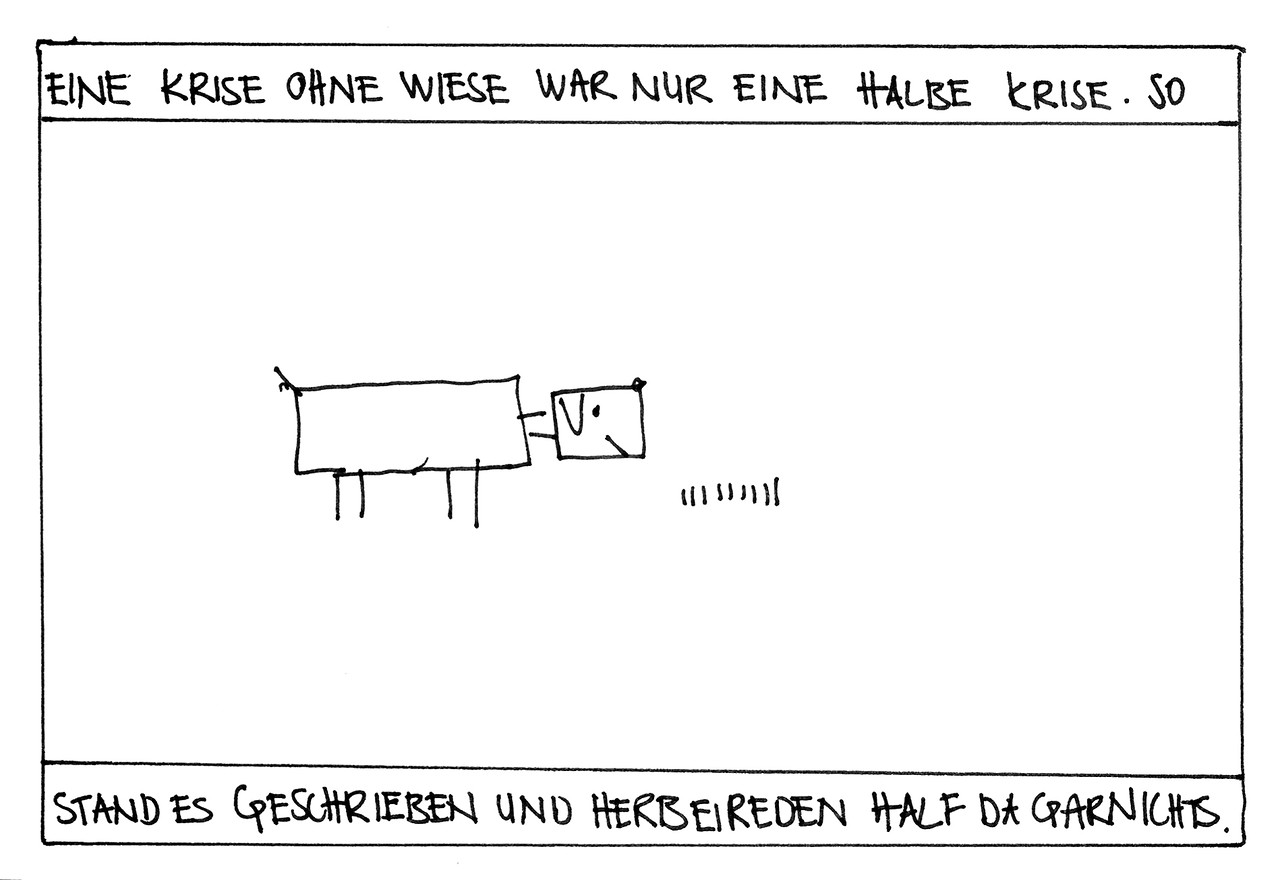 EINE KRISE OHNE WIESE WAR NUR EINE HALBE KRISE. SO
STAND ES GESCHRIEBEN UND HERBEIREDEN HALF DA GARNICHTS.